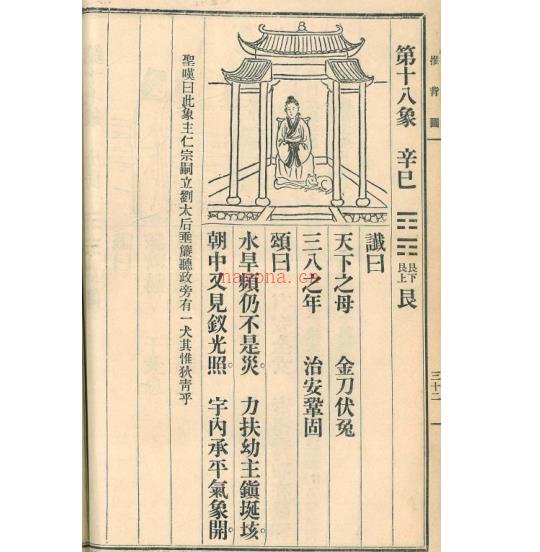 推背圖
三十二
第十八象 辛巳 ䷳ 艮下艮上 艮
讖曰
天下之母 金刀伏兔
三八之年 治安鞏固
頌曰
水旱頻仍不是災。 力扶幼主鎭埏垓。
朝中又見釵光照。 宇內承平氣象開。
聖嘆曰此象主仁宗嗣立劉太后垂簾聽政旁有一犬其惟狄青乎